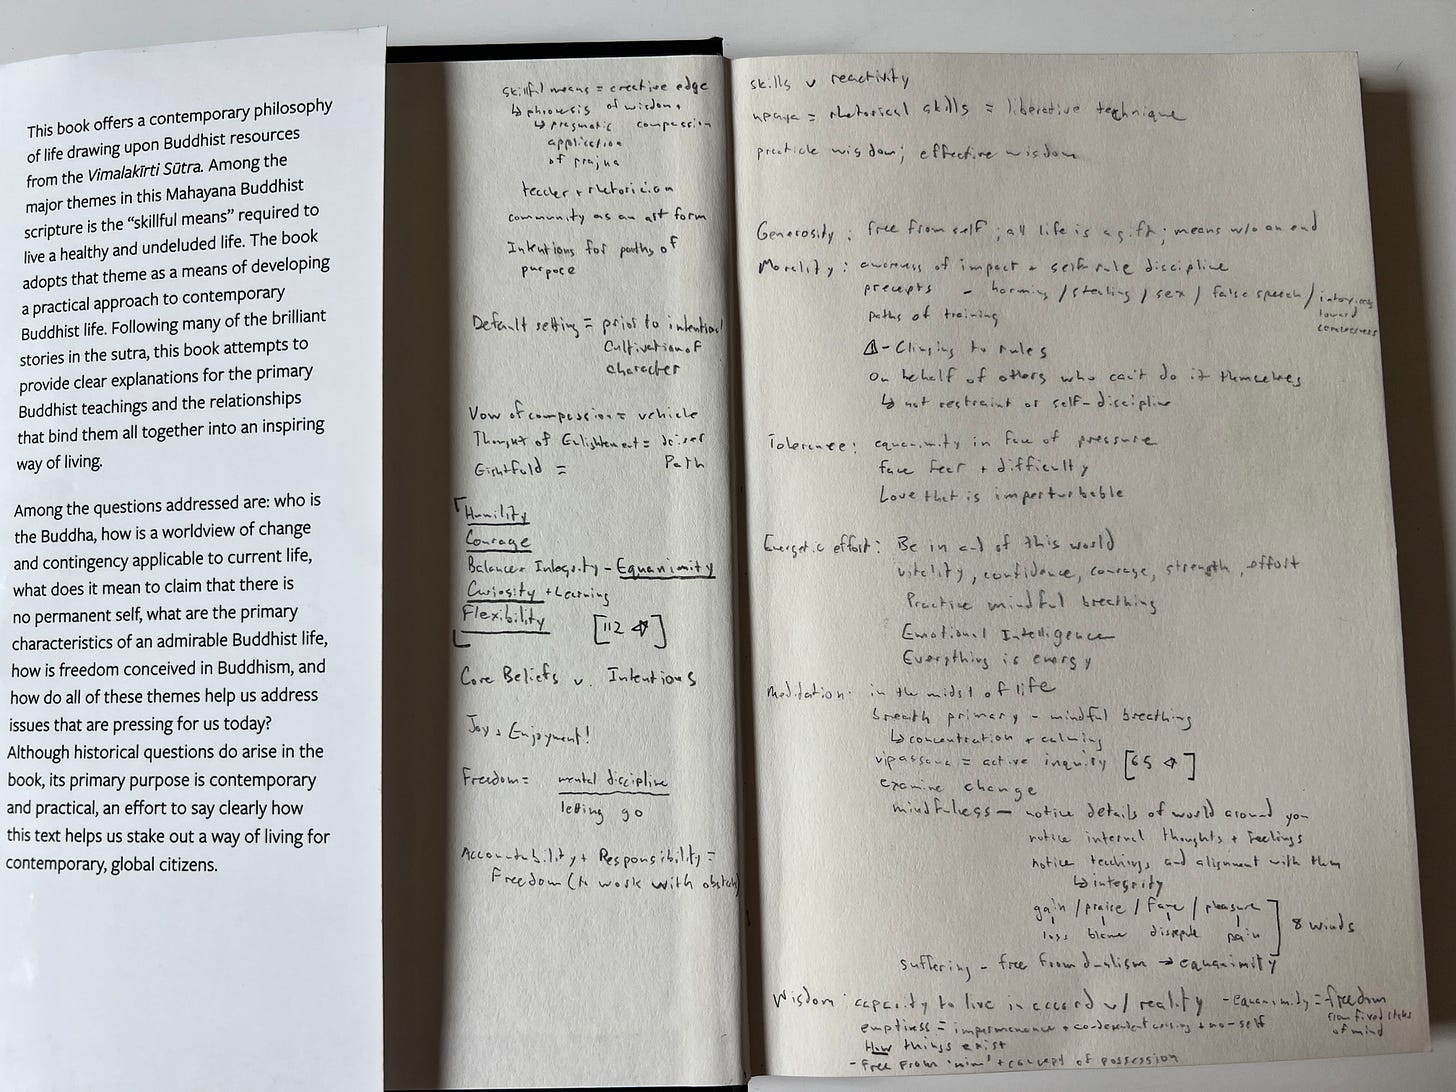 This book offers a contemporary philosophy
of life drawing upon Buddhist resources
from the Vimalakīrti Sūtra. Among the
major themes in this Mahayana Buddhist
scripture is the “skillful means” required to
live a healthy and undeluded life. The book
adopts that theme as a means of developing
a practical approach to contemporary
Buddhist life. Following many of the brilliant
stories in the sutra, this book attempts to
provide clear explanations for the primary
Buddhist teachings and the relationships
that bind them all together into an inspiring
way of living.
Among the questions addressed are: who is
the Buddha, how is a worldview of change
and contingency applicable to current life,
what does it mean to claim that there is
no permanent self, what are the primary
characteristics of an admirable Buddhist life,
how is freedom conceived in Buddhism, and
how do all of these themes help us address
issues that are pressing for us today?
Although historical questions do arise in the
book, its primary purpose is contemporary
and practical, an effort to say clearly how
this text helps us stake out a way of living for
contemporary, global citizens.
skillful means = creative edge
↳ phronesis of wisdom,
↳ pragmatic compassion
application
of prajna
teacher + rhetorician
community as an art form
Intentions for paths of
purpose
Default setting = prior to intentional
Cultivation of
character
Vow of compassion = vehicle
Thought of Enlightenment =
Eightfold = Path
Humility
Courage
Balance + Integrity - Equanimity
Curiosity + Learning
Flexibility
[112 ]
Core Beliefs v. Intentions
Joy + Enjoyment!
Freedom = mental discipline
letting go
Accountability + Responsibility =
Freedom (to work with
skills v reactivity
upaya = rhetorical skills = liberative technique
practicle wisdom; effective wisdom
Generosity: free from self; all life is a gift; means w/o an end
Morality: awareness of impact + self-rule discipline
precepts - harming / stealing / sex / false speech /
toward
paths of training
⚠ - Clinging to rules
On behalf of others who can't do it themselves
↳ not restraint or self-discipline
Tolerance: equanimity in face of pressure
face fear + difficulty
Love that is imperturbable
Energetic effort: Be in and of this world
vitality, confidence, courage, strength, effort
Practice mindful breathing
Emotional Intelligence
Everything is energy
Meditation: in the midst of life
breath primary - mindful breathing
↳ concentration + calming
vipassana = active inquiry [65 ]
examine change
mindfulness - notice details of world around you
notice internal thoughts + feelings
notice teachings and alignment with them
↳ integrity
gain / praise / fame / pleasure
loss blame disrepute pain
8 winds
suffering - free from dualism → equanimity
Wisdom: capacity to live in accord w/ reality - equanimity = freedom
from fixed states
of mind
emptiness = impermanence + co-dependent arising + no-self
How things exist
- free from 'mine' + concept of possession